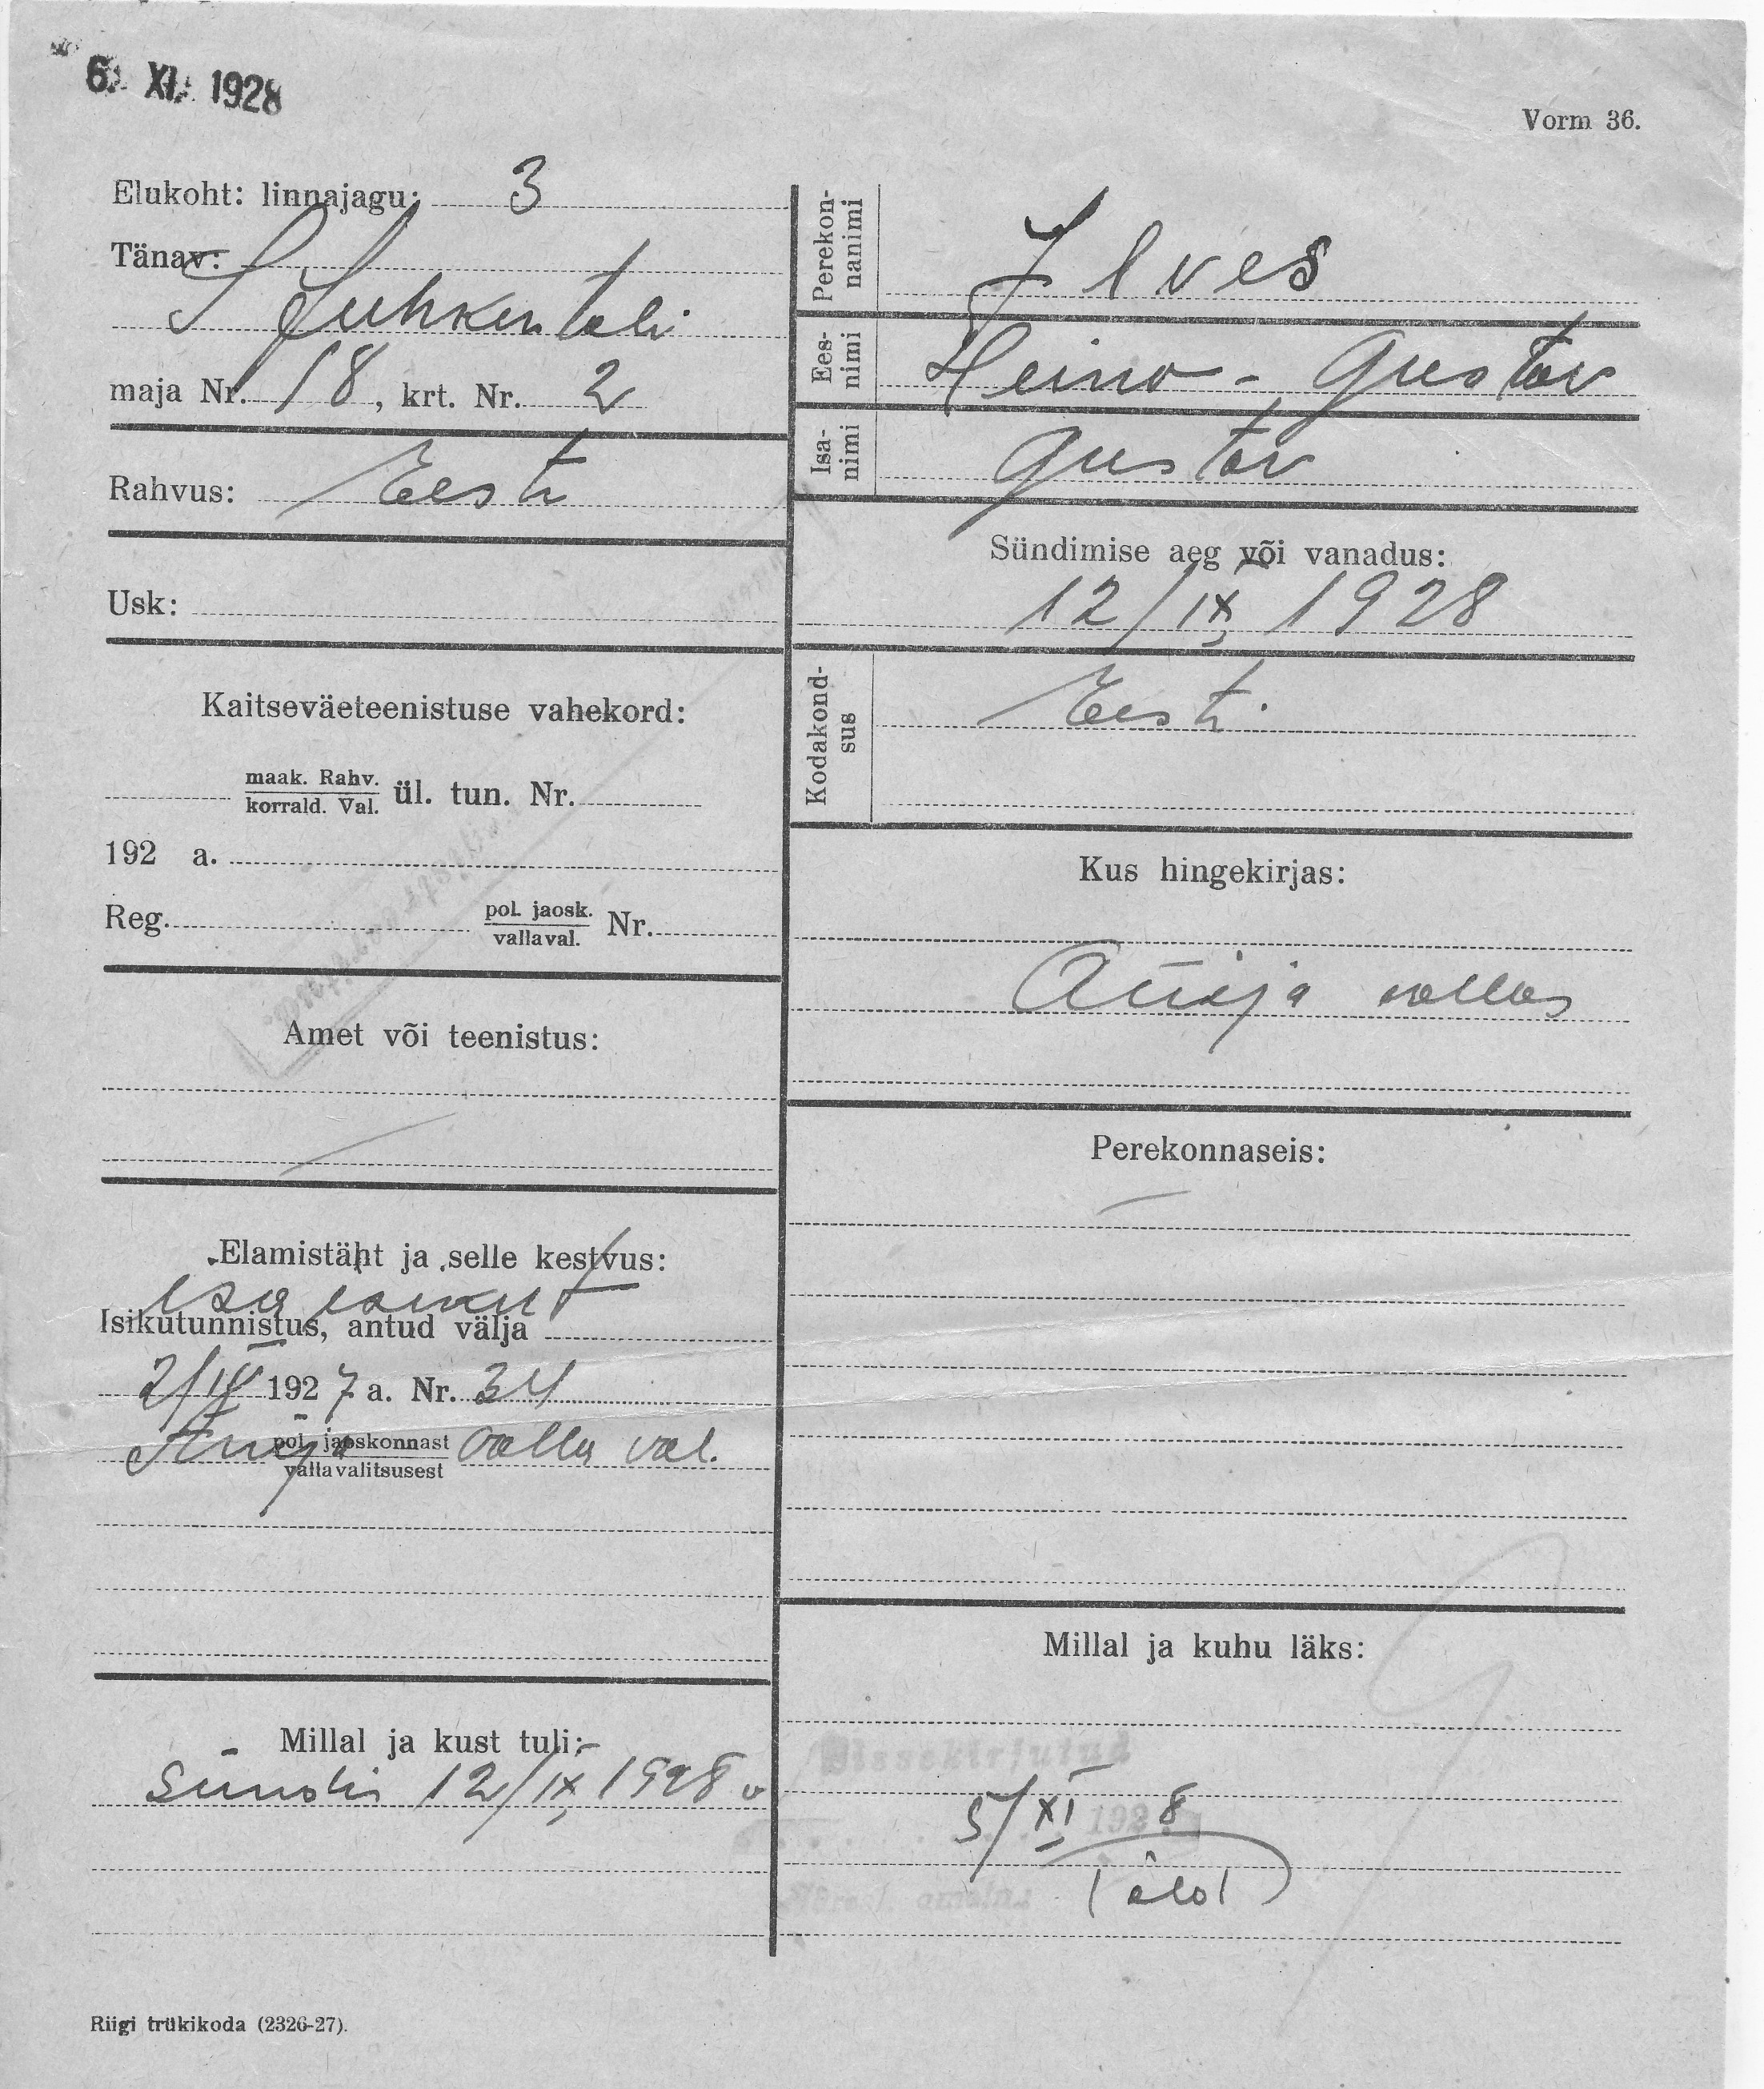 6. XI. 1928
Vorm 36.
Elukoht: linnajagu: 3
Tänav:
S Juhkentali
maja Nr. 18, krt. Nr. 2
Rahvus: Eesti
Usk:
Kaitseväeteenistuse vahekord:
maak. Rahv.
korrald. Val. ül. tun. Nr.
192 a.
Reg. pol. jaosk.
vallaval. Nr.
Amet või teenistus:
Elamistäht ja selle kestvus:
Isa
Isikutunnistus, antud välja
2/IV 1927 a. Nr. 34
Anija pol. jaoskonnast valla val.
vallavalitsusest
Millal ja kust tuli:
Sündis 12/IX 1928
Perekon-
nanimi
Ilves
Ees-
nimi
Heino - Gustav
Isa-
nimi
Gustav
Sündimise aeg või vanadus:
12/IX, 1928
Kodakond-
sus
Eesti
Kus hingekirjas:
Anija vallas
Perekonnaseis:
Millal ja kuhu läks:
Sissekirjutud
5/XI 1928
Riigi trükikoda (2326-27).